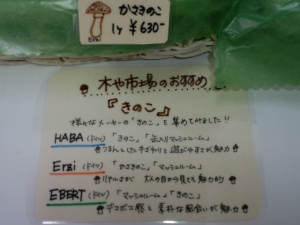 かさきのこ
1ヶ ¥630-
ERBI
木や市場のおすすめ
『きのこ』
様々なメーカーの"きのこ"を集めてみました!!
HABA (ドイツ) 「きのこ」「缶入りマッシュルーム」
つるんとした手ざわりと遊びやすさが魅力
Erbi (ドイツ) 「かさきのこ」「マッシュルーム」
リアルさが 大人の目から見ても魅力的
EBERT (ドイツ) 「マッシュルーム」「きのこ」
デコボコ感と素朴な風合いが魅力